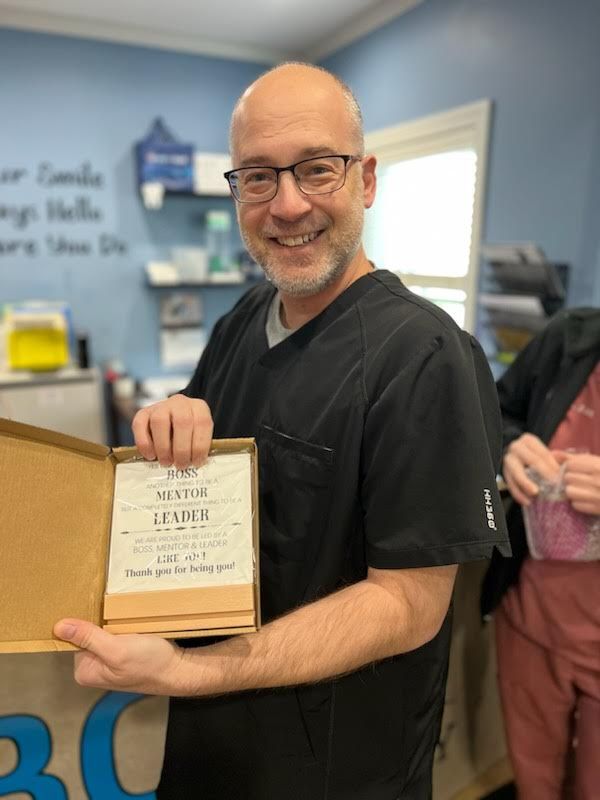 Smile
Hello
You Do
BOSS
ANOTHER THING TO BE A
MENTOR
BUT A COMPLETELY DIFFERENT THING TO BE A
LEADER
WE ARE PROUD TO BE LED BY A
BOSS, MENTOR & LEADER
LIKE YOU!
Thank you for being you!
HH360